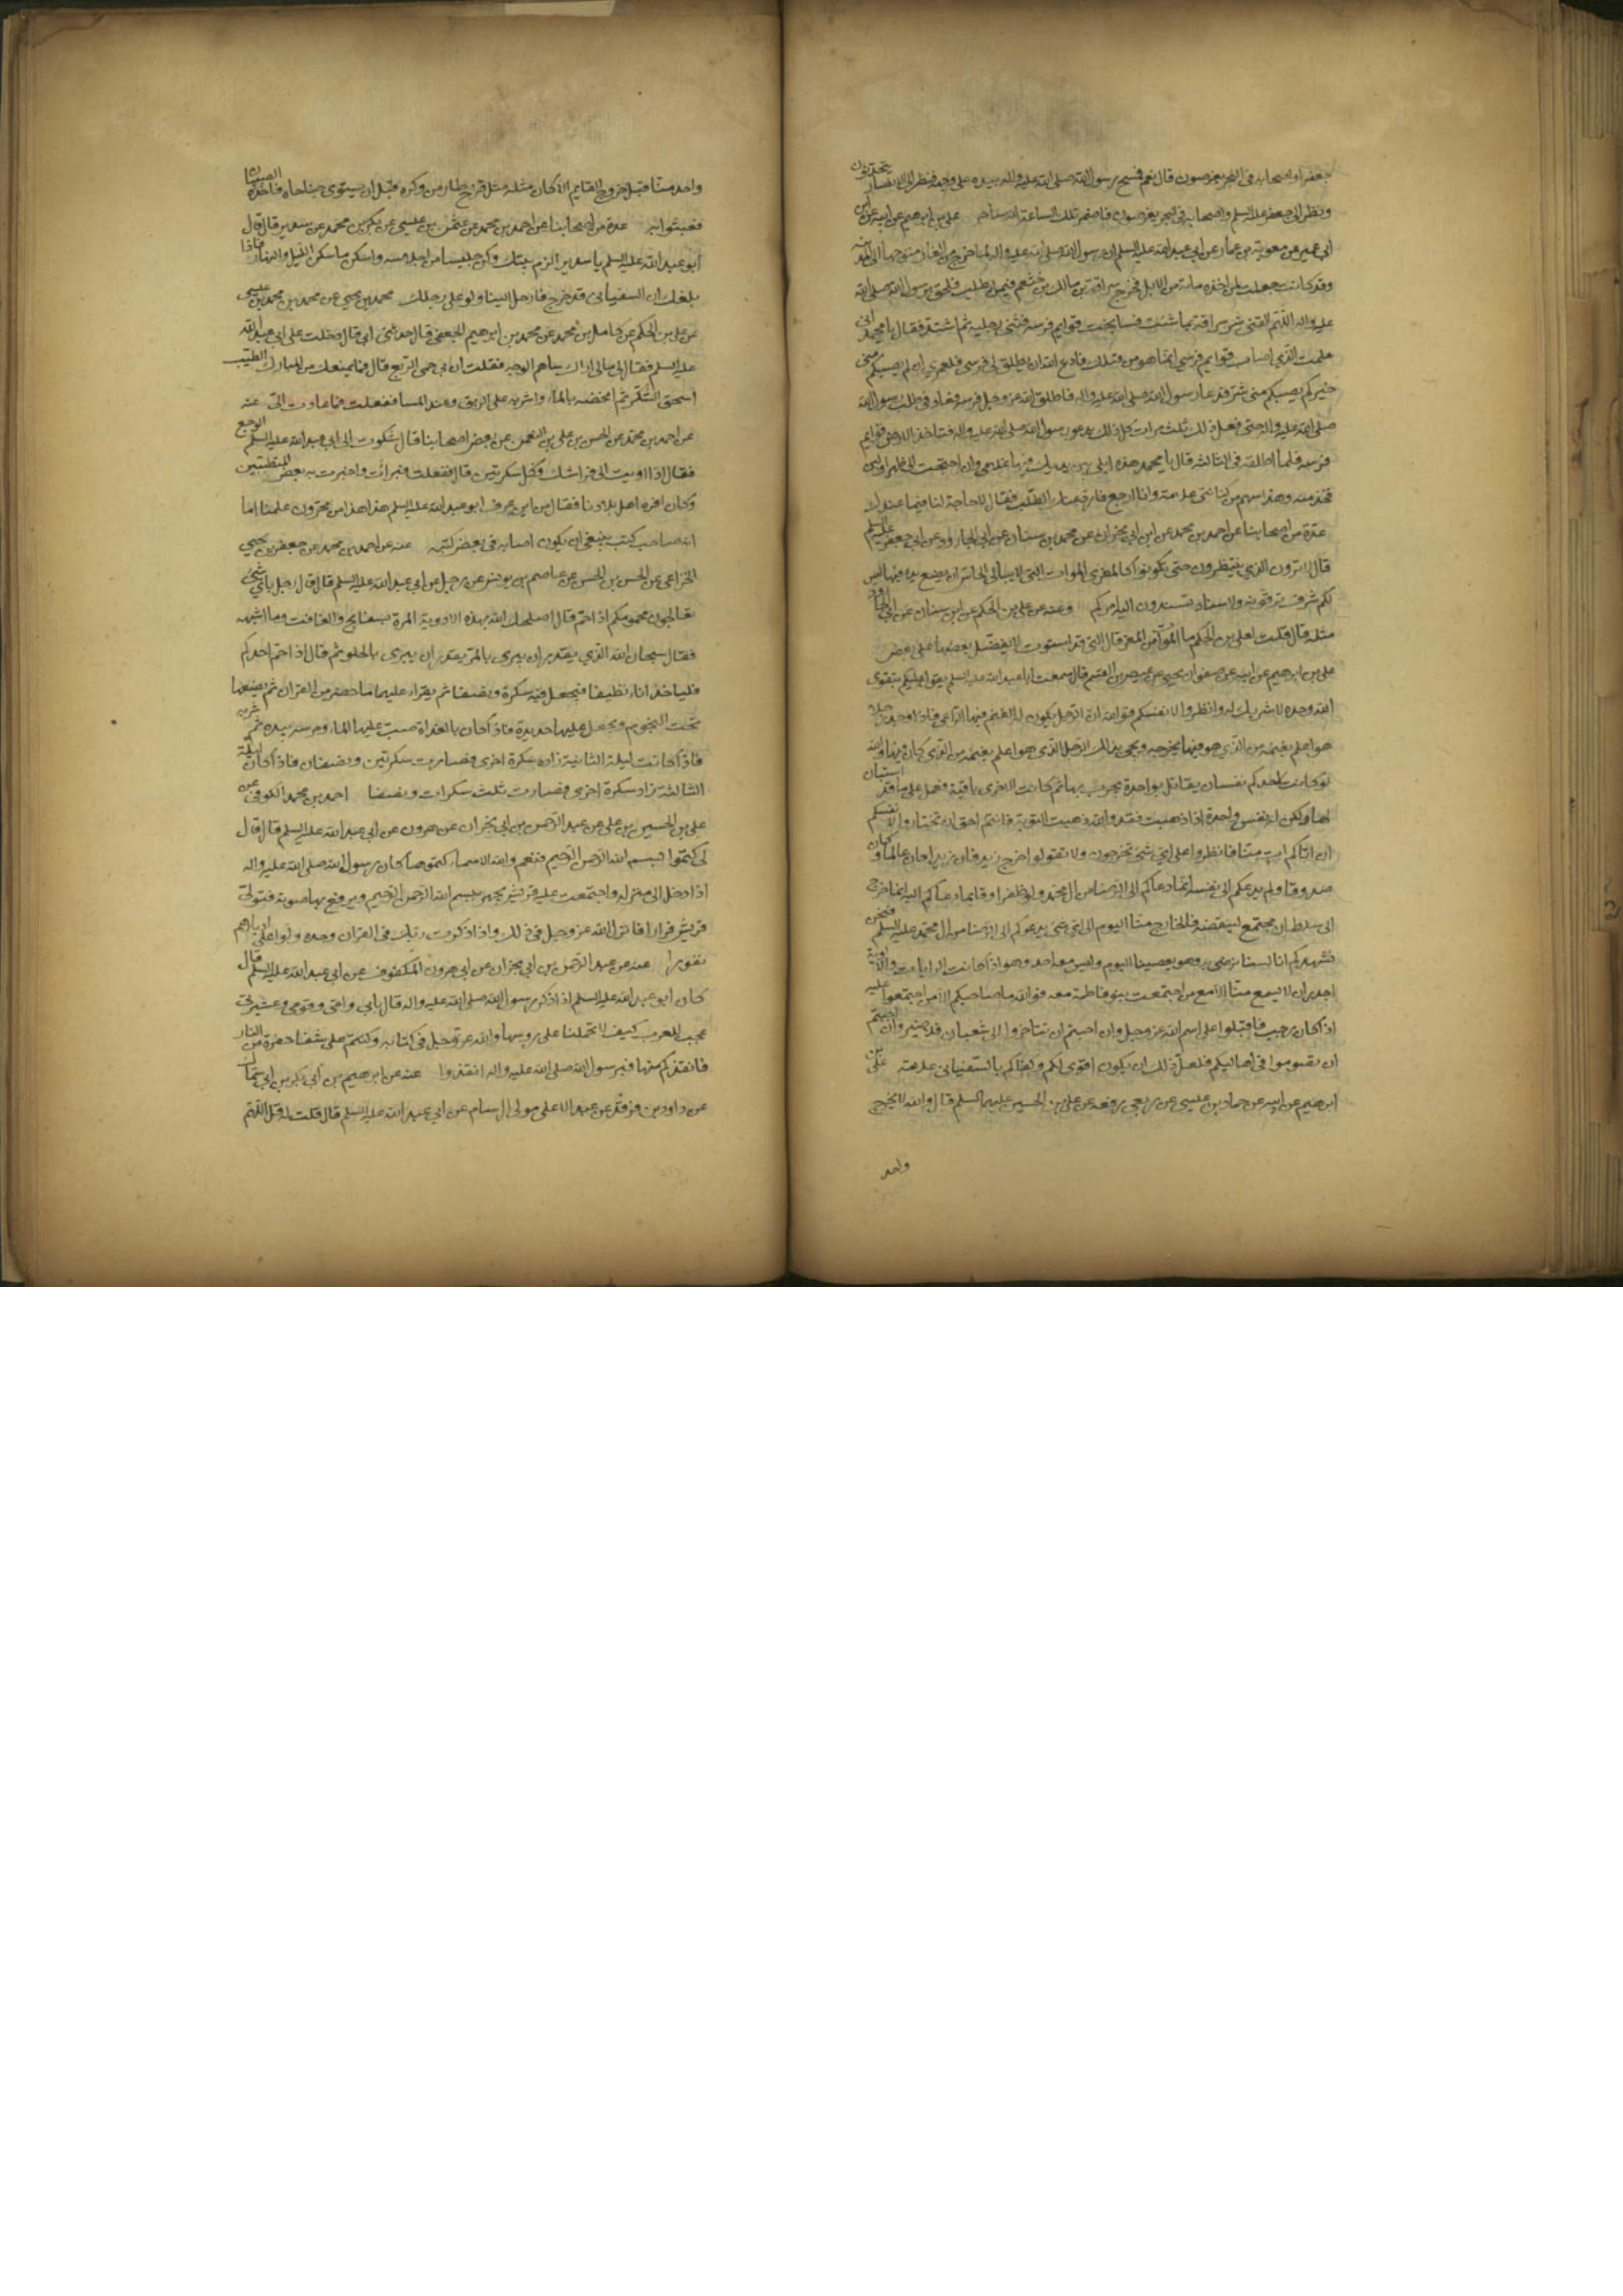 جعفر واصحابه في البحر يغوصون قال نعم فمسح رسول الله صلى الله عليه واله بيده على وجهه فنظر الى الانصار يتحدثون
ونظر الى جعفر عليه السلم واصحابه في البحر يغوصون فاضمر تلك الساعة انه ساحر علي بن ابرهيم عن ابيه عن ابن
ابي عمير عن معوية بن عمار عن ابي عبد الله عليه السلم ان رسول الله صلى الله عليه واله لما خرج من الغار متوجها الى المدينة
وقد كانت جعلت لمن اخذه مائة من الابل فخرج سراقة بن مالك بن جشعم فيمن يطلب فلحق برسول الله صلى الله
عليه واله اللهم اكفني شر سراقة بما شئت فساخت قوايم فرسه فثنى رجليه ثم اشتد فقال يا محمد اني
علمت ان الذي اصاب قوايم فرسي انما هو من قبلك فادع الله ان يطلق لي فرسي فلعمري ان لم يصبكم مني
خيركم يصبكم مني شر فدعا رسول الله صلى الله عليه واله فاطلق الله عز وجل فرسه فعاد في طلب رسول الله
صلى الله عليه واله حتى فعل ذلك ثلث مرات كل ذلك يدعو رسول الله صلى الله عليه واله فتاخذ الارض قوايم
فرسه فلما اطلقه في الثالثة قال يا محمد هذه ابلي بين يديك فيها غلامي وان احتجت الى ظهر او لبن
فخذ منه وهذا سهم من كنانتي علامة وانا ارجع فارد عنك الطلب فقال لا حاجة لنا فيما عندك
عدة من اصحابنا عن احمد بن محمد عن ابن ابي نجران عن محمد بن سنان عن ابي الجارود عن ابي جعفر عليه السلم
قال لا ترون الذي تنتظرون حتى تكونوا كالمعزى الموات التي لا يبالي الخابس ان يضع يده فيها ليس
لكم شرف ترقونه ولا سناد تسندون اليه امركم وعنه عن علي بن الحكم عن ابن سنان عن ابي الجارود
مثله قال قلت لعلي بن الحكم ما الموات من المعز قال التي قد استوت لا يفضل بعضها على بعض
علي بن ابرهيم عن ابيه عن صفوان بن يحيى عن عيص بن القسم قال سمعت ابا عبد الله عليه السلم يقول عليكم بتقوى
الله وحده لا شريك له وانظروا لانفسكم فوالله ان الرجل ليكون له الغنم فيها الراعي فاذا وجد رجلا
هو اعلم بغنمه من الذي هو فيها يخرجه ويجئ بذلك الرجل الذي هو اعلم بغنمه من الذي كان فيها والله
لو كانت لاحدكم نفسان يقاتل بواحدة يجرب بها ثم كانت الاخرى باقية فعمل على ما قد استبان
لها ولكن له نفس واحدة اذا ذهبت فقد والله ذهبت التوبة فانتم احق ان تختاروا لانفسكم
ان اتاكم ات منا فانظروا على اي شئ تخرجون ولا تقولوا خرج زيد فان زيدا كان عالما وكان
صدوقا ولم يدعكم الى نفسه انما دعاكم الى الرضا من ال محمد ولو ظفر لوفا بما دعاكم اليه انما خرج
الى سلطان مجتمع لينقضه فالخارج منا اليوم الى اي شئ يدعوكم الى الرضا من ال محمد عليه السلم فنحن
نشهدكم انا لسنا نرضى به وهو يعصينا اليوم وليس معه احد وهو اذا كانت الرايات والالوية
اجدر ان لا يسمع منا الا مع من اجتمعت بنو فاطمة معه فوالله ما صاحبكم الا من اجتمعوا عليه
اذا كان رجب فاقبلوا على اسم الله عز وجل وان احببتم ان تتاخروا الى شعبان فلا ضير وان احببتم
ان تصوموا في اهاليكم فلعل ذلك ان يكون اقوى لكم وكفاكم بالسفياني علامة علي بن
ابرهيم عن ابيه عن حماد بن عيسى عن ربعي رفعه عن علي بن الحسين عليهما السلم قال والله لا يخرج
واحد
واحد منا قبل خروج القايم الا كان مثله مثل فرخ طار من وكره قبل ان يستوي جناحاه فاخذه الصبيان
فعبثوا به عدة من اصحابنا عن احمد بن محمد عن عثمن بن عيسى عن بكر بن محمد عن سدير قال قال
ابو عبد الله عليه السلم يا سدير الزم بيتك وكن حلسا من احلاسه واسكن ما سكن الليل والنهار فاذا
بلغك ان السفياني قد خرج فارحل الينا ولو على رجلك محمد بن يحيى عن محمد بن محمد بن عيسى
عن علي بن الحكم عن كامل بن محمد عن محمد بن ابرهيم الجعفي قال حدثني ابي قال دخلت على ابي عبد الله
عليه السلم فقال لي ما لي اراك ساهم الوجه فقلت ان بي حمى الربع قال فما يمنعك من المبارك الطيب
اسحق السكر ثم امخضه بالماء واشربه على الريق وعند المسا ففعلت فما عادت الي عنه
عن احمد بن محمد عن الحسن بن علي بن النعمن عن بعض اصحابنا قال شكوت الى ابي عبد الله عليه السلم الوجع
فقال اذا اويت الى فراشك فكل سكرتين قال ففعلت فبرات واخبرت به بعض المتطببين
وكان افره اهل بلادنا فقال من اين عرف ابو عبد الله عليه السلم هذا هذا من مخزون علمنا اما
انه صاحب كتب ينبغي ان يكون اصابه في بعض كتبه عنه عن احمد بن محمد عن جعفر بن يحيى
الخزاعي عن الحسن بن الحسن عن عاصم بن يونس عن رجل عن ابي عبد الله عليه السلم قال قال لرجل باي شئ
تعالجون محمومكم اذا حم قال اصلحك الله بهذه الادوية المرة بسفايج والغافت وما اشبهه
فقال سبحان الله الذي يقدر ان يبرئ بالمر يقدر ان يبرئ بالحلو ثم قال اذا حم احدكم
فلياخذ اناء نظيفا فيجعل فيه سكرة ونصفا ثم يقراء عليها ما حضر من القران ثم يضعها
تحت النجوم ويجعل عليها حديدة فاذا كان بالغداة صب عليها الماء ومرسه بيده ثم شربه
فاذا كانت ليلة الثانية زاده سكرة اخرى فصارت سكرتين ونصفا فاذا كان ليلة
الثالثة زاد سكرة اخرى فصارت ثلث سكرات ونصفا احمد بن محمد الكوفي عن
علي بن الحسين بن علي عن عبد الرحمن بن ابي نجران عن هرون عن ابي عبد الله عليه السلم قال قال
لي كتموا بسم الله الرحمن الرحيم فنعم والله الاسماء كتموها كان رسول الله صلى الله عليه واله
اذا دخل الى منزله واجتمعت عليه قريش يجهر ببسم الله الرحمن الرحيم ويرفع بها صوته فتولي
قريش فرارا فانزل الله عز وجل في ذلك واذا ذكرت ربك في القران وحده ولوا على ادبارهم
نفورا عنه عن عبد الرحمن بن ابي نجران عن ابي هرون المكفوف عن ابي عبد الله عليه السلم قال
كان ابو عبد الله عليه السلم اذا ذكر رسول الله صلى الله عليه واله قال بابي وامي وقومي وعشيرتي
عجب للعرب كيف لا تحملنا على روسها والله عز وجل في كتابه وكنتم على شفا حفرة من النار
فانقذكم منها فبرسول الله صلى الله عليه واله انقذوا عنه عن ابرهيم بن ابي بكر بن ابي سمال
عن داود بن فرقد عن عبد الاعلى مولى ال سام عن ابي عبد الله عليه السلم قال قلت له قل اللهم